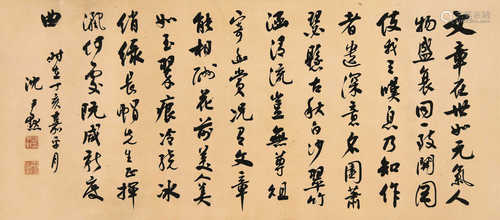 文章在世如元氣人
物盛衰同致開圖
使我三嘆息乃知作
者遺深意名園蕭
瑟懸古秋白沙翠竹
涵清流豈無尊俎
寄幽賞況乃文章
能相酬花前美人美
如玉翠痕冷繞冰
綃綠長帽先生正揮
灑何處阮咸新度
曲
時在丁亥嘉平月
沈尹默